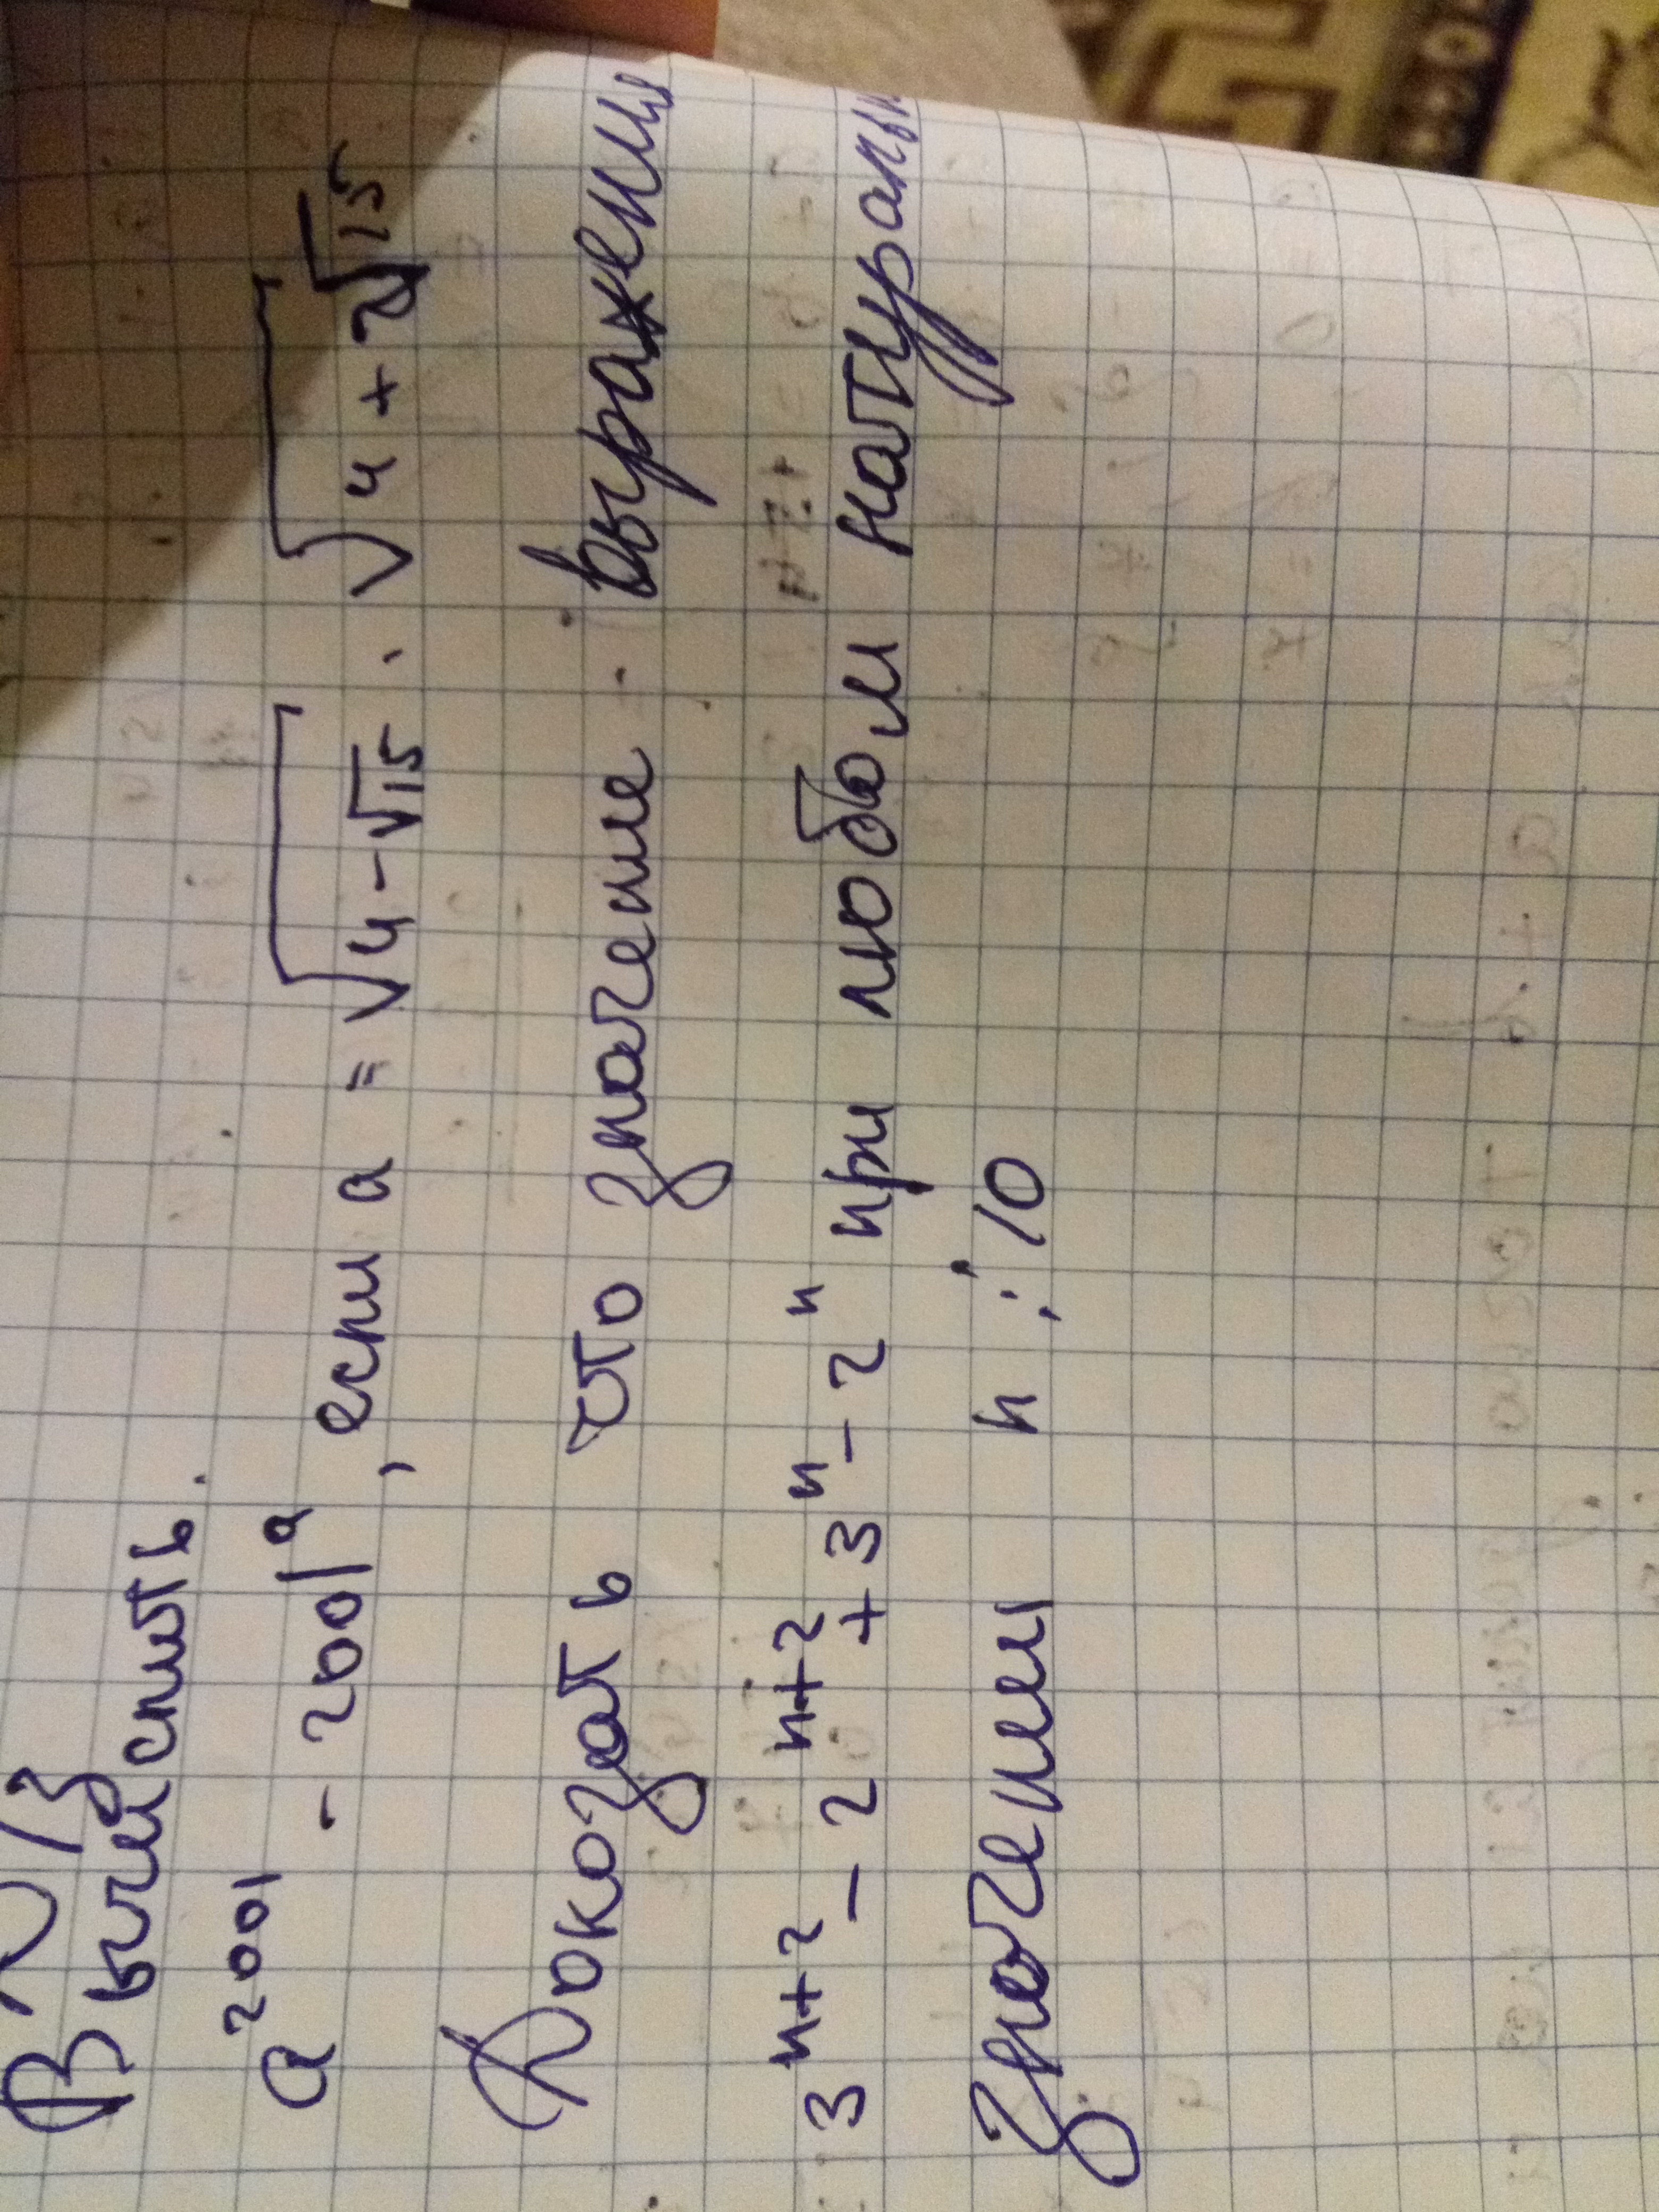 Д/З
Вычислить.
a²⁰⁰¹ - 2001ᵃ, если a = √(4-√15) · √(4+√15)
Доказать что значение выражения
3ⁿ⁺² - 2ⁿ⁺² + 3ⁿ - 2ⁿ при любом натуральн
значении n ⋮ 10